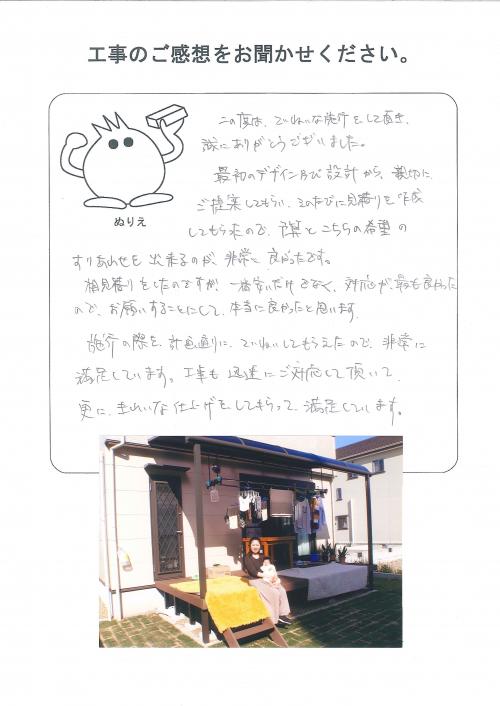 工事のご感想をお聞かせください。
ぬりえ
この度は、ていねいな施行をして頂き、
誠にありがとうございました。
最初のデザイン及び設計から、親切に
ご提案してもらい、そのたびに見積りを作成
してもらえたので、予算とこちらの希望の
すりあわせを出来るのが、非常に良かったです。
相見積りをしたのですが、一番安いだけでなく、対応が、最も良かった
ので、お願いすることにして、本当に良かったと思います。
施行の際も、計画通りに、ていねいしてもらえたので、非常に
満足しています。工事も迅速にご対応して頂いて、
更に、きれいな仕上げをしてもらって、満足しています。